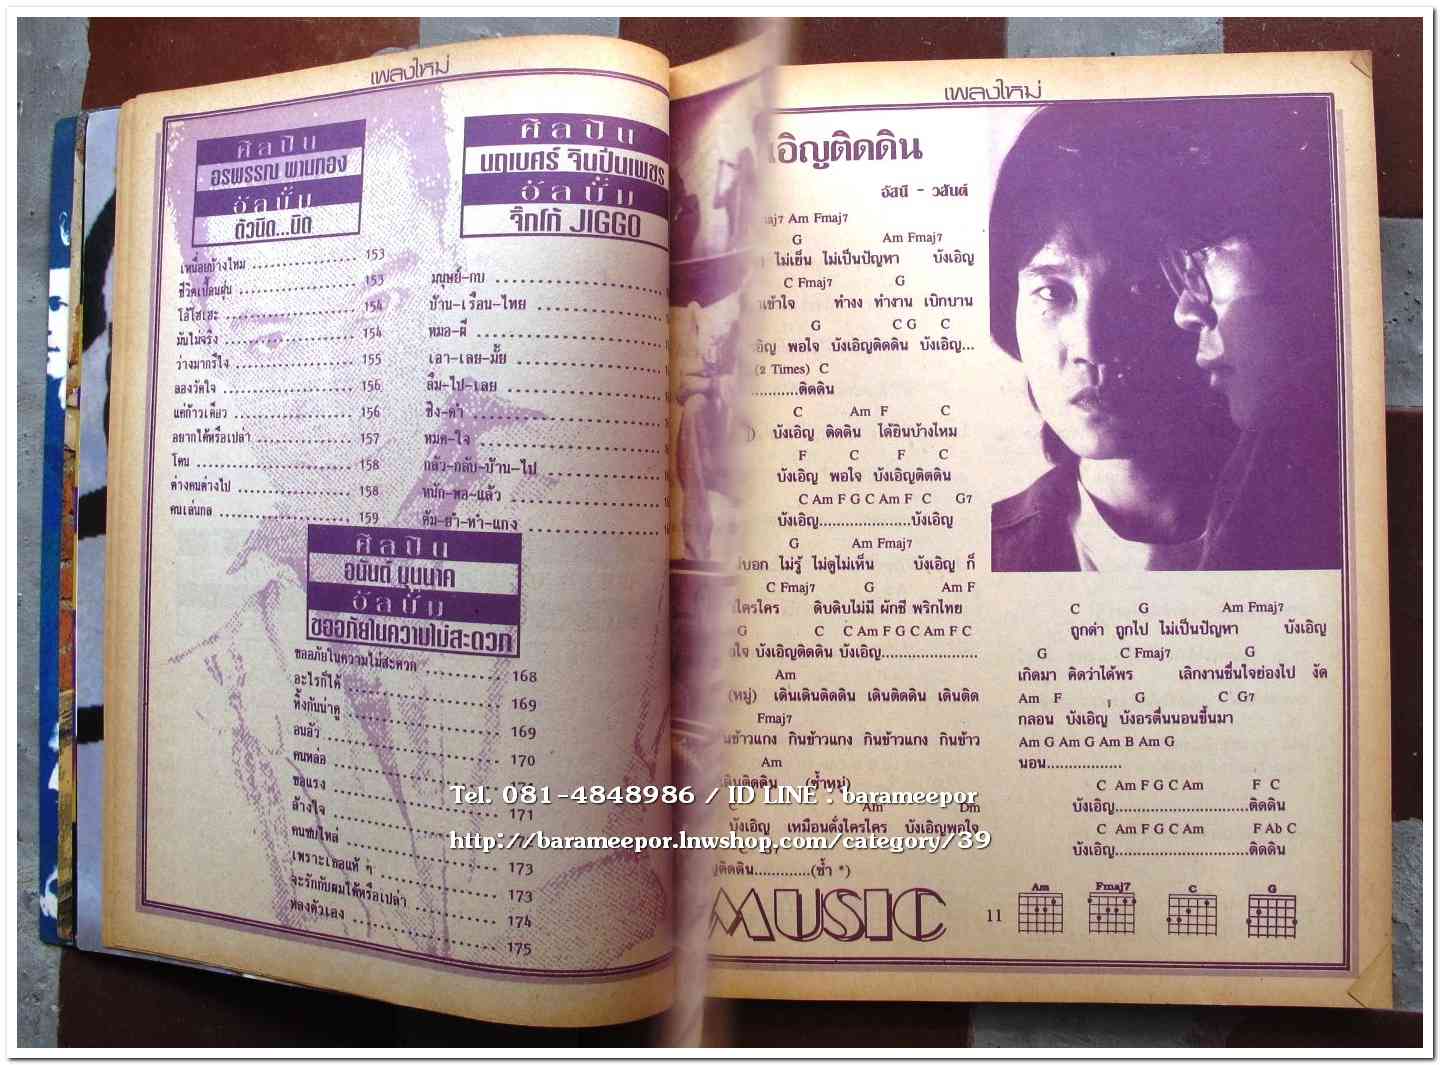 เพลงใหม่
ศิลปิน
อรพรรณ พานทอง
อัลบั้ม
ตัวนิด...นิด
เหนื่อยบ้างไหม 153
ชีวิตเปื้อนฝุ่น 153
โอ้โฮเฮะ 154
มันไม่จริง 154
ว่างมากรึไง 155
ลองวัดใจ 156
แค่ก้าวเดียว 156
อยากได้หรือเปล่า 157
โดน 158
ต่างคนต่างไป 158
คนเล่นกล 159
ศิลปิน
นฤเบศร์ จินปิ่นเพชร
อัลบั้ม
จิ๊กโก๋ JIGGO
มนุษย์-กบ
บ้าน-เรือน-ไทย
หมอ-ผี
เอา-เลย-มั้ย
ลืม-ไป-เลย
ชิง-ดำ
หมด-ใจ
กลัว-กลับ-บ้าน-ไป
หนัก-พอ-แล้ว
ต้ม-ยำ-ทำ-แกง
ศิลปิน
อนันต์ บุนนาค
อัลบั้ม
ขออภัยในความไม่สะดวก
ขออภัยในความไม่สะดวก 168
อะไรก็ได้ 169
ทิ้งกันนาคู 169
อนฮัว 170
คนหล่อ
ขอแรง 171
ล้างใจ
คนซบไหล่ 173
เพราะเธอแท้ ๆ 173
จะรักกับผมได้หรือเปล่า 174
หลงตัวเอง 175
เพลงใหม่
เอิญติดดิน
อัสนี - วสันต์
Am Fmaj7
G Am Fmaj7
ไม่เย็น ไม่เป็นปัญหา บังเอิญ
C Fmaj7 G
เข้าใจ ทำงง ทำงาน เบิกบาน
G C G C
พอใจ บังเอิญติดดิน บังเอิญ...
(2 Times) C
............ติดดิน
C Am F C
บังเอิญ ติดดิน ได้ยินบ้างไหม
F C F C
บังเอิญ พอใจ บังเอิญติดดิน
C Am F G C Am F C G7
บังเอิญ.....................บังเอิญ
G Am Fmaj7
บอก ไม่รู้ ไม่ดูไม่เห็น บังเอิญ ก็
C Fmaj7 G Am F
ใครใคร ดิบดิบไม่มี ผักชี พริกไทย
G C C Am F G C Am F C
บังเอิญติดดิน บังเอิญ......................
Am
(หมู่) เดินเดินติดดิน เดินติดดิน เดินติด
Fmaj7
กินข้าวแกง กินข้าวแกง กินข้าว
Am
ดินติดดิน (ซ้ำหมู่)
C Am Dm
บังเอิญ เหมือนดั่งใครใคร บังเอิญพอใจ
ติดดิน.............(ซ้ำ *)
C G Am Fmaj7
ถูกด่า ถูกไป ไม่เป็นปัญหา บังเอิญ
G C Fmaj7 G
เกิดมา คิดว่าได้พร เลิกงานชื่นใจย่องไป งัด
Am F G C G7
กลอน บังเอิญ บังอรตื่นนอนขึ้นมา
Am G Am G Am B Am G
นอน.................
C Am F G C Am F C
บังเอิญ..............................ติดดิน
C Am F G C Am F Ab C
บังเอิญ..............................ติดดิน
MUSIC
11
Am Fmaj7 C G
Tel. 081-4848986 / ID LINE : barameepor
http://barameepor.lnwshop.com/category/39